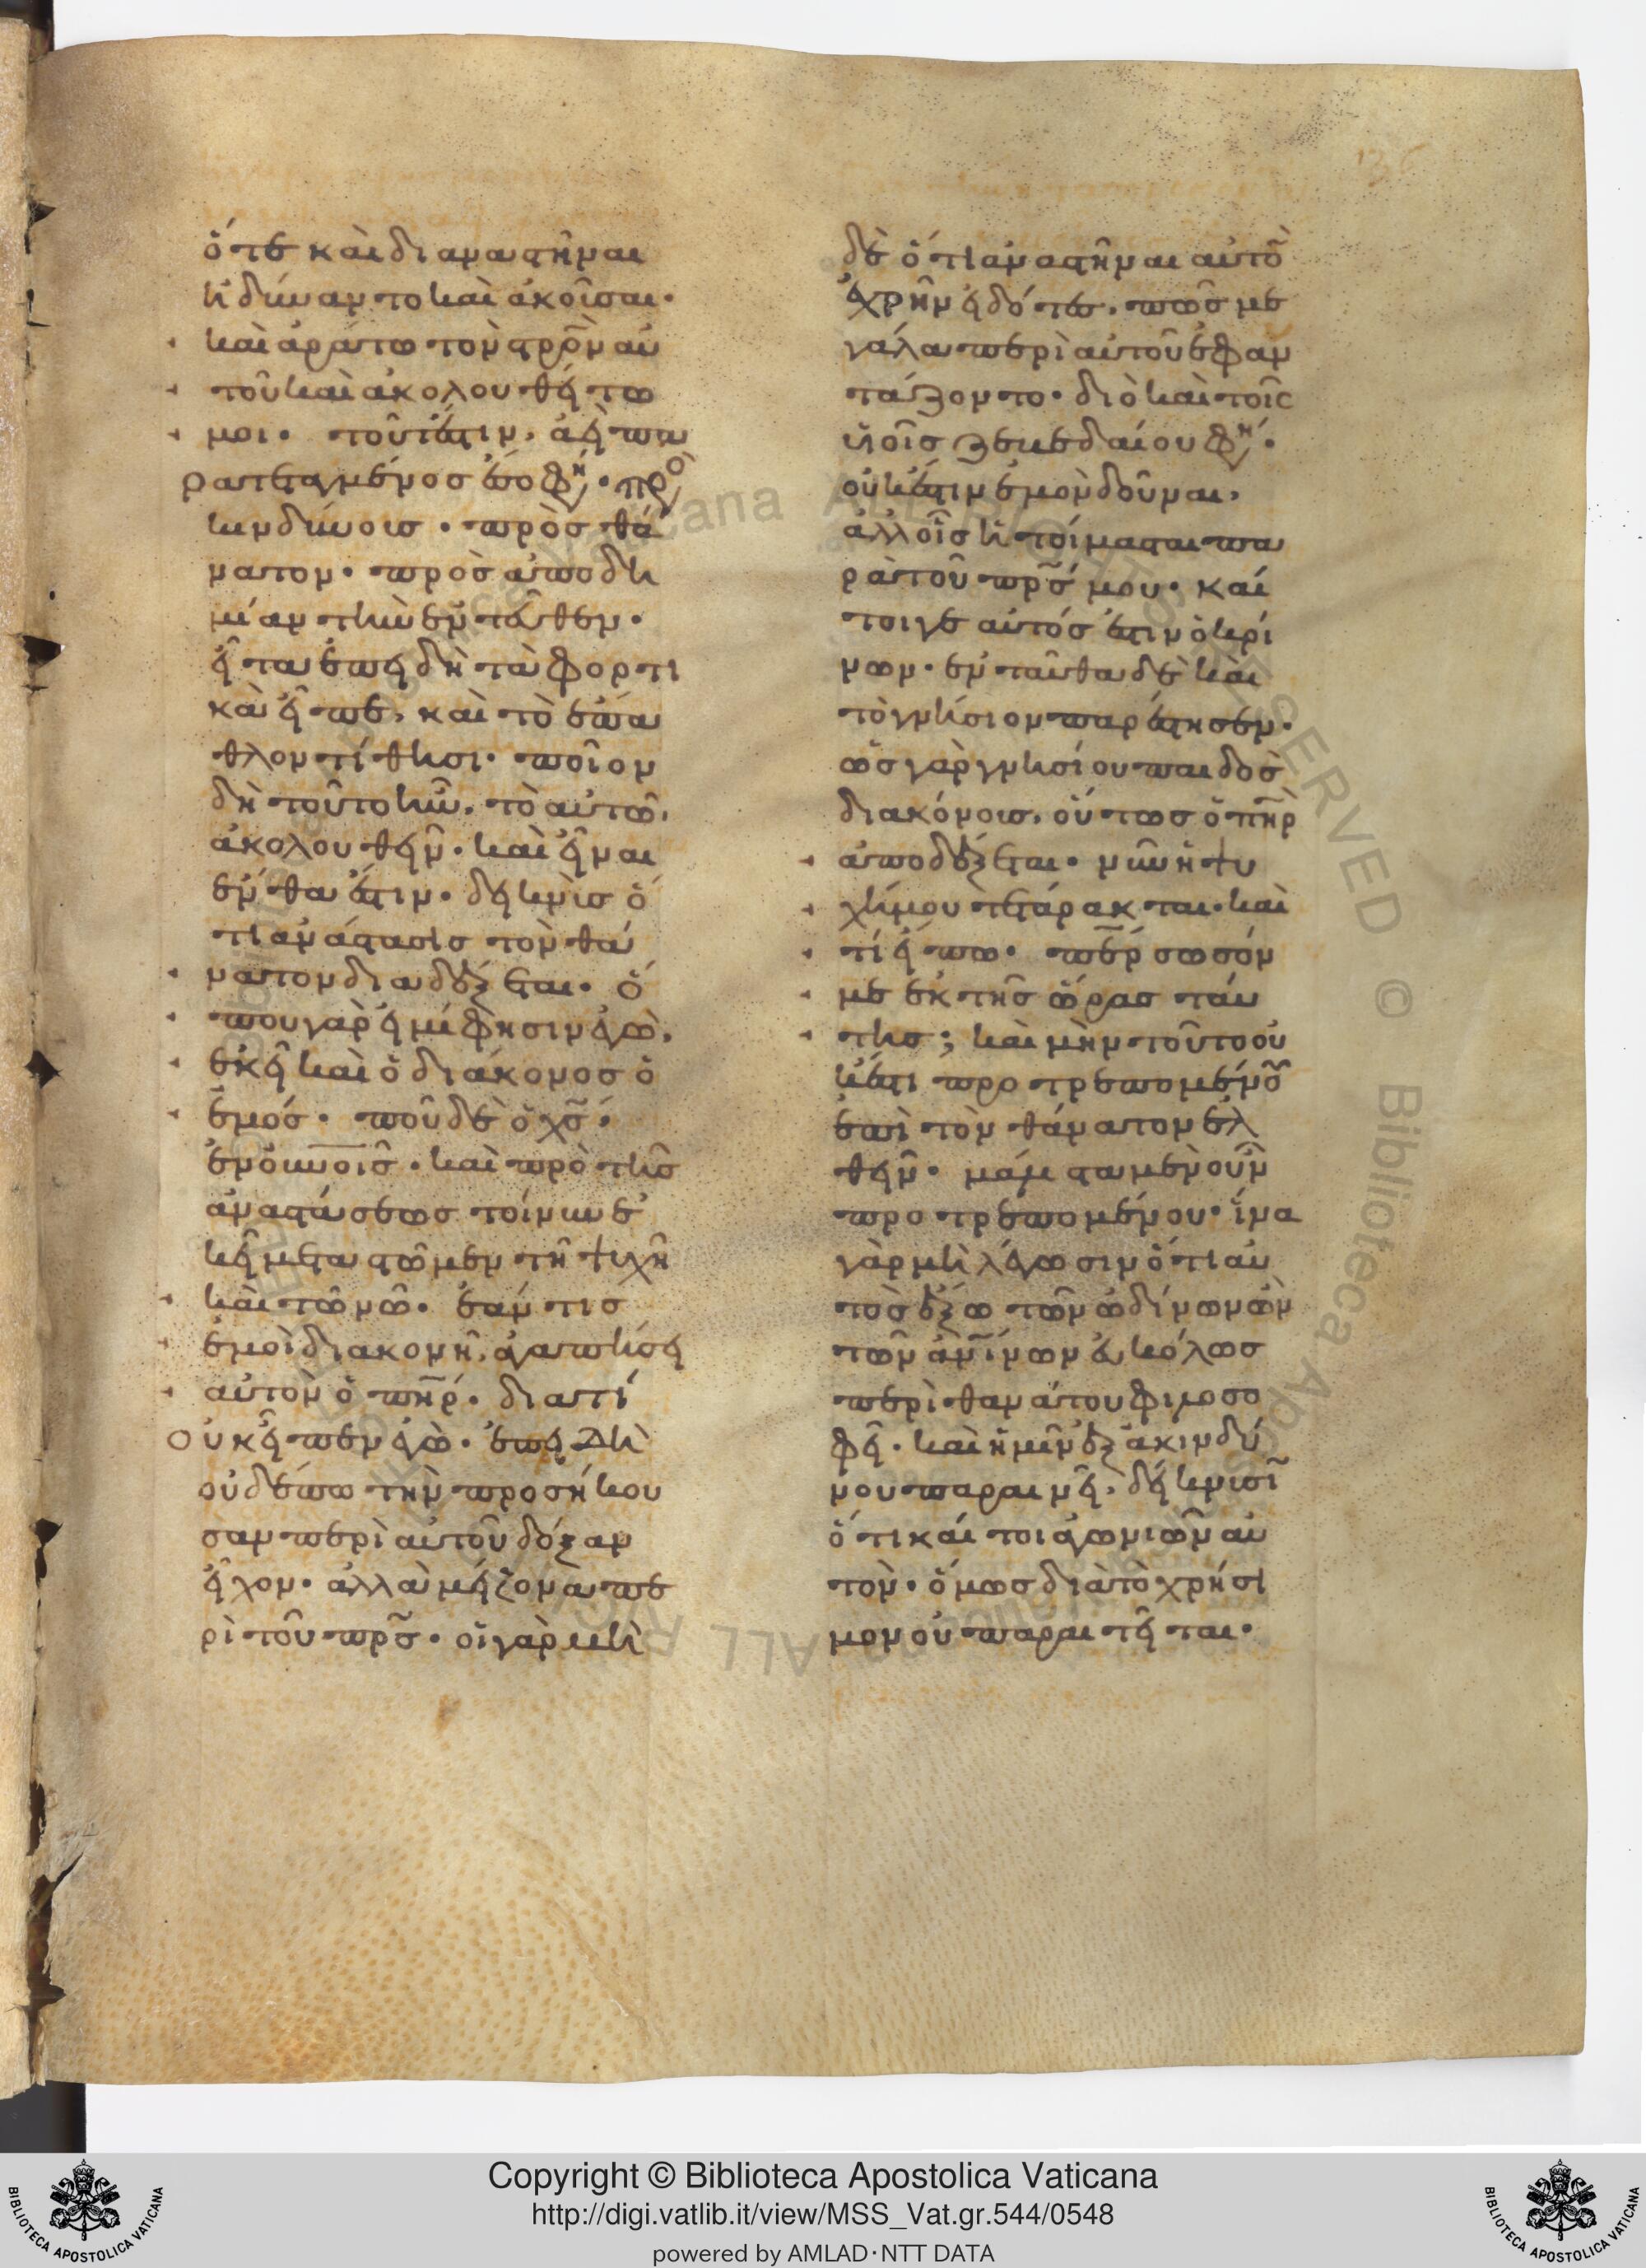 ὅτε καὶ διαναστῆναι
ἠδύναντο καὶ ἀκοῦσαι·
καὶ ἀράτω τὸν στρον αὐ
τοῦ καὶ ἀκολουθείτω
μοι· τουτέστιν, ἀεὶ πα
ρατεταγμένος ἔσο φη· πρὸ
κινδύνοις· πρὸς θά
νατον· πρὸς ἀποδη
μίαν τὴν ἐνταῦθεν·
εἶτα ἐπειδὴ τὰ φορτι
κὰ εἶπε, καὶ τὸ ἔπα
θλον τίθησι· ποῖον
δὴ τοῦτο ἦν, τὸ αὐτῶ,
ἀκολουθεῖν· καὶ εἶναι
ἔνθα ἐστιν· δεικνὺς ὅ
τι ἀνάστασις τὸν θά
νατον διαδέξεται· ὅ
που γὰρ εἰμί φησιν ἐγὼ,
ἐκεῖ καὶ ὁ διάκονος ὁ
ἐμός· ποῦ δὲ ὁ χς·
ἐν οὐνοις· καὶ πρὸ τῆς
ἀναστάσεως τοίνυν ἐ
κεῖ μεταστῶμεν τῆ ψυχῆ
καὶ τῶ νῶ· ἐάν τις
ἐμοὶ διακονῆ, ἀγαπήσει
αὐτὸν ὁ πηρ· διατί
οὐκ εἶπεν ἐγὼ· ἐπειδὴ
οὐδέπω τὴν προσήκου
σαν περὶ αὐτοῦ δόξαν
εἶχον· ἀλλὰ μείζονα πε
ρὶ τοῦ πρς· οἱ γὰρ μὴ
δὲ ὅτι ἀναστῆναι αὐτὸ
ἐχρῆν εἰδότε, πῶς με
γάλα περὶ αὐτοῦ ἐφαν
τάζοντο· διὸ καὶ τοῖς
υἱοῖς ζεβεδαίου φη·
οὐκ ἔστιν ἐμὸν δοῦναι,
ἀλλ οἷς ἡτοίμασται πα
ρὰ τοῦ πρς μου· καί
τοιγε αὐτός ἐστιν ὁ κρί
νων· ἐνταῦθα δὲ καὶ
τὸ γνήσιον παρέστησεν·
ὡς γὰρ γνησίου παιδὸς
διακόνοις, οὕτως ὁ πηρ
ἀποδέξεται· νῦν ἡ ψυ
χή μου τετάρακται· καὶ
τί εἴπω· περ σῶσόν
με ἐκ τῆς ὥρας ταύ
της; καὶ μὴν τοῦτο οὐ
κ ἔστι προτρεπομένου
ἐπὶ τὸν θάνατον ἐλ
θεῖν· μάλιστα μὲν οὖν
προτρεπομένου· ἵνα
γὰρ μὴ λέγωσιν ὅτι αὐ
τὸς ἔξω τῶν ὠδίνων ὢν
τῶν ἀνίνων εὐκόλως
περὶ θανάτου φιλοσο
φεῖ· καὶ ἡμῖν ἐξ ἀκινδύ
νου παραινεῖ, δείκνυσι
ὅτι καίτοι ἀγωνιῶν αὐ
τὸν· ὅμως διὰ τὸ χρήσι
μον οὐ παραιτεῖται·
Copyright © Biblioteca Apostolica Vaticana
http://digi.vatlib.it/view/MSS_Vat.gr.544/0548
powered by AMLAD·NTT DATA